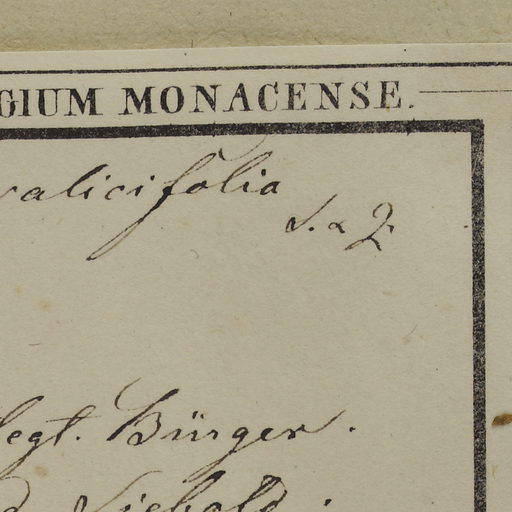 GIUM MONACENSE.
salicifolia
S. & Z.
legt. Bürger.
d. Siebold.